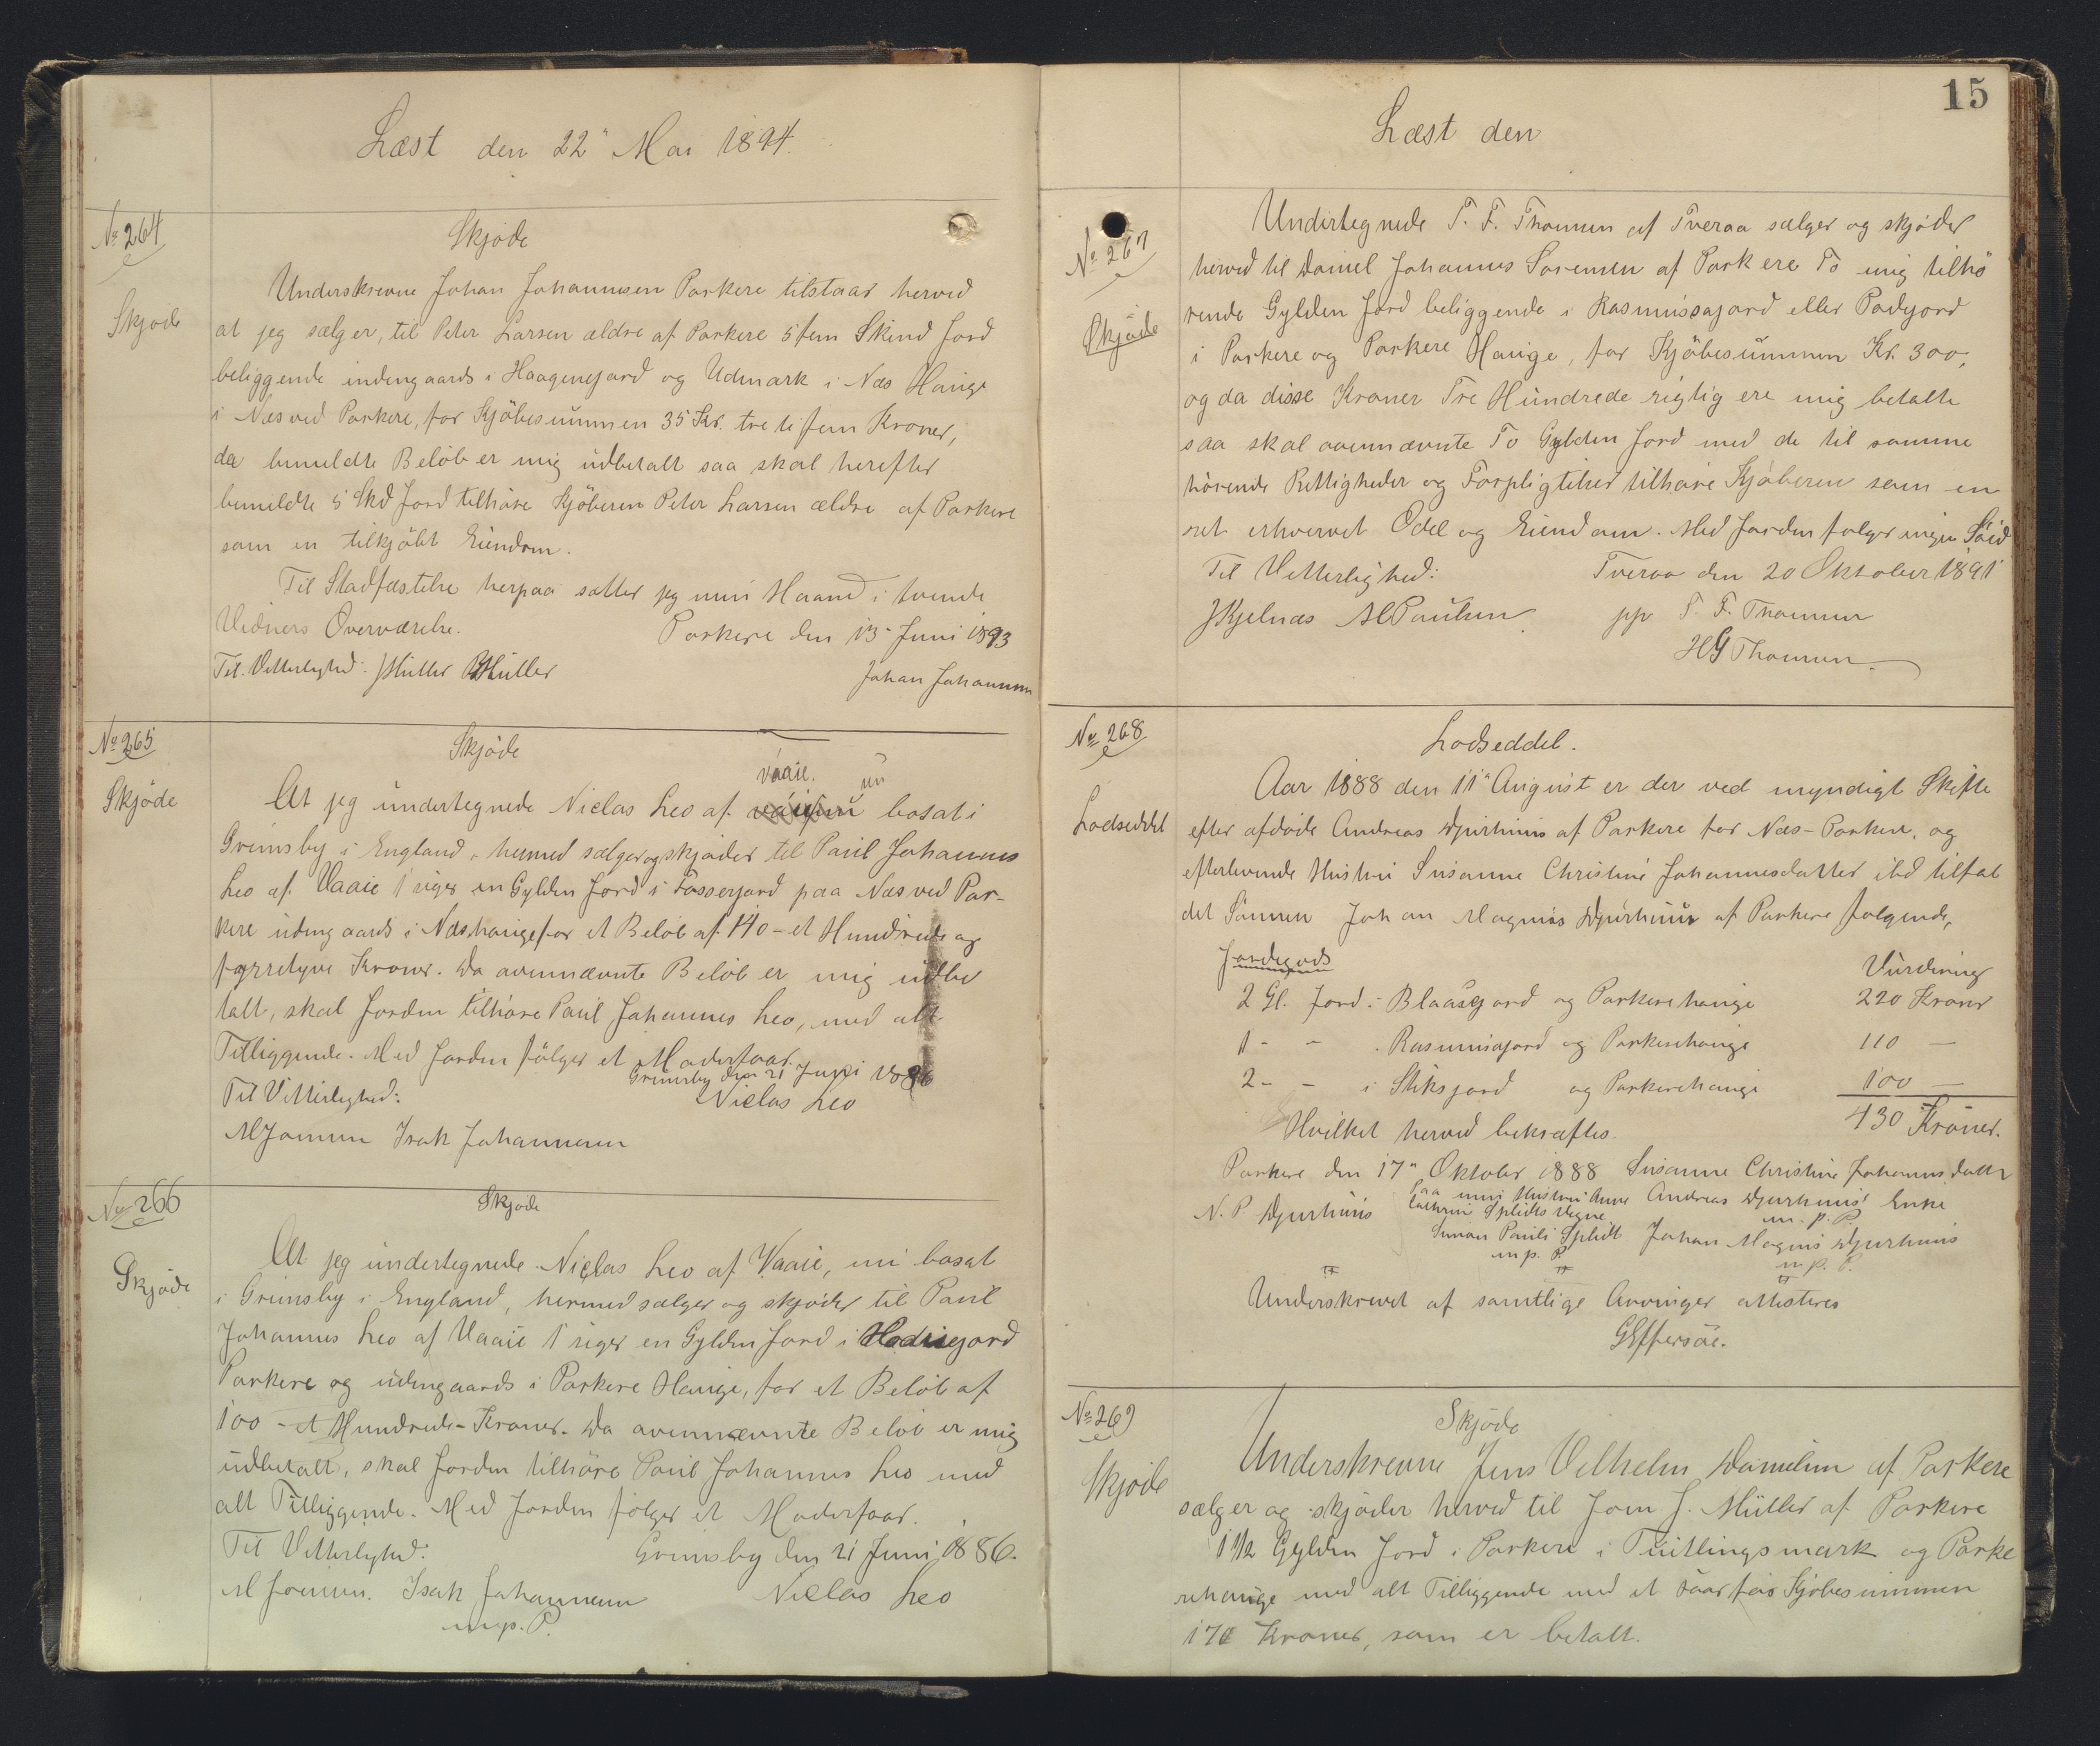 Læst den 22" Mai 1894.
No 264
Skjøde
Skjøde
Underskrevne Johan Johannesen Porkere tilstaar herved
at jeg sælger, til Peter Larsen ældre af Porkere 5 fem Skind Jord
beliggende indengaards i Haagenejord og Udmark i Næs Hauge
i Næs ved Porkere, for Kjöbesummen 35 Kr. treti fem Kroner,
da bemeldte Belöb er mig udbetalt saa skal herefter
bemeldte 5 Skd Jord tilhöre Kjöberen Peter Larsen ældre af Porkere
som en tilkjöbt Eiendom.
Til Stadfæstelse herpaa sætter jeg min Haand i tvende
Vidners Overværelse.
Porkere den 13 Juni 1893
Til Vitterlighed: J Müller Müller
Johan Johannesen
No 265
Skjöde
Skjöde
Vaaie. nu
At jeg undertegnede Niclas Leo af bosat i
Grimsby i England, hermed sælger og skjöder til Paul Johannes
Leo af Vaaie 1 siger en Gylden Jord i Fosserjord paa Næs ved Por-
kere udengaards i Næshauge for et Belöb af 140 - et Hundrede og
fyrretyve Kroner. Da ovennævnte Belöb er mig udbe
talt, skal Jorden tilhöre Paul Johannes Leo, med alt
Tilliggende. Med Jorden fölger et Moderfaar.
Grimsby den 21 Juni 1886
Til Vitterlighed:
Niclas Leo
M Joensen Isak Johannesen
No 266
Skjøde
Skjøde
At jeg undertegnede Niclas Leo af Vaaie, nu bosat
i Grimsby i England, hermed sælger og skjöder til Paul
Johannes Leo af Vaaie 1 siger en Gylden Jord i Hadisejord
Porkere og udengaards i Porkere Hauge, for et Belöb af
100 - et Hundrede - Kroner. Da ovennævnte Belöb er mig
udbetalt, skal Jorden tilhöre Paul Johannes Leo med
alt Tilliggende. Med Jorden fölger et Moderfaar.
Til Vitterlighed:
Grimsby den 21 Juni 1886.
M Joensen. Isak Johannesen
Niclas Leo
m.p. P.
15
Læst den
No 267
Skjöde
Undertegnede T. F. Thomsen af Tveraa sælger og skjöder
herved til Daniel Johannes Sorensen af Porkere To mig tilhö
rende Gylden Jord beliggende i Rasmussajord eller
i Porkere og Porkere Hauge, for Kjöbesummen Kr. 300,
og da disse Kroner Tre Hundrede rigtig ere mig betalte
saa skal ovennævnte To Gylden Jord med de til samme
hörende Rettigheder og Forpligtelser tilhöre Kjöberen som en
ret erhvervet Odel og Eiendom. Med Jorden fölger ingen Söid
Til Vitterlighed:
Tveraa den 20 Oktober 1891
J Kjelnæs M Poulsen
pp T. F. Thomsen
HG Thomsen
No 268
Lodseddel
Lodseddel.
Aar 1888 den 11" August er der ved myndigt Skifte
efter afdöde Andreas Djurhuus af Porkere for Næs-Porkere, og
efterlevende Hustru Susanne Christine Johannesdatter ibd tilfal
det Sönnen Johan Magnus Djurhuus af Porkere fölgende
Jordegods
Vurdering
2 Gl. Jord i Blaasgjord og Porkerehauge 220 Kroner
1 - - . Rasmusajord og Porkerehauge 110 —
2 - - i Stiksjord og Porkerehauge 100 —
430 Kroner.
Hvilket herved bekræftes.
Porkere den 17" Oktober 1888 Susanne Christine Johannesdatter
Andreas Djurhuus' Enke
m. p. P.
N. P. Djurhuus
Paa min Hustru Anne
Cathrine Splidts Vegne
Simon Pauli Splidt
m.p. P.
Johan Magnus Djurhuus
m. p. P.
Underskrevet af samtlige Arvinger attesteres
GEffersöe.
No 269
Skjöde
Skjöde
Underskrevne Jens Vilhelm Danielsen af Porkere
sælger og skjöder herved til Joen J. Müller af Porkere
1 1/2 Gylden Jord i Porkere i Tuitlingsmark og Porke
rehauge med alt Tilliggende med et Faar for Kjöbesummen
170 Kroner, som er betalt.